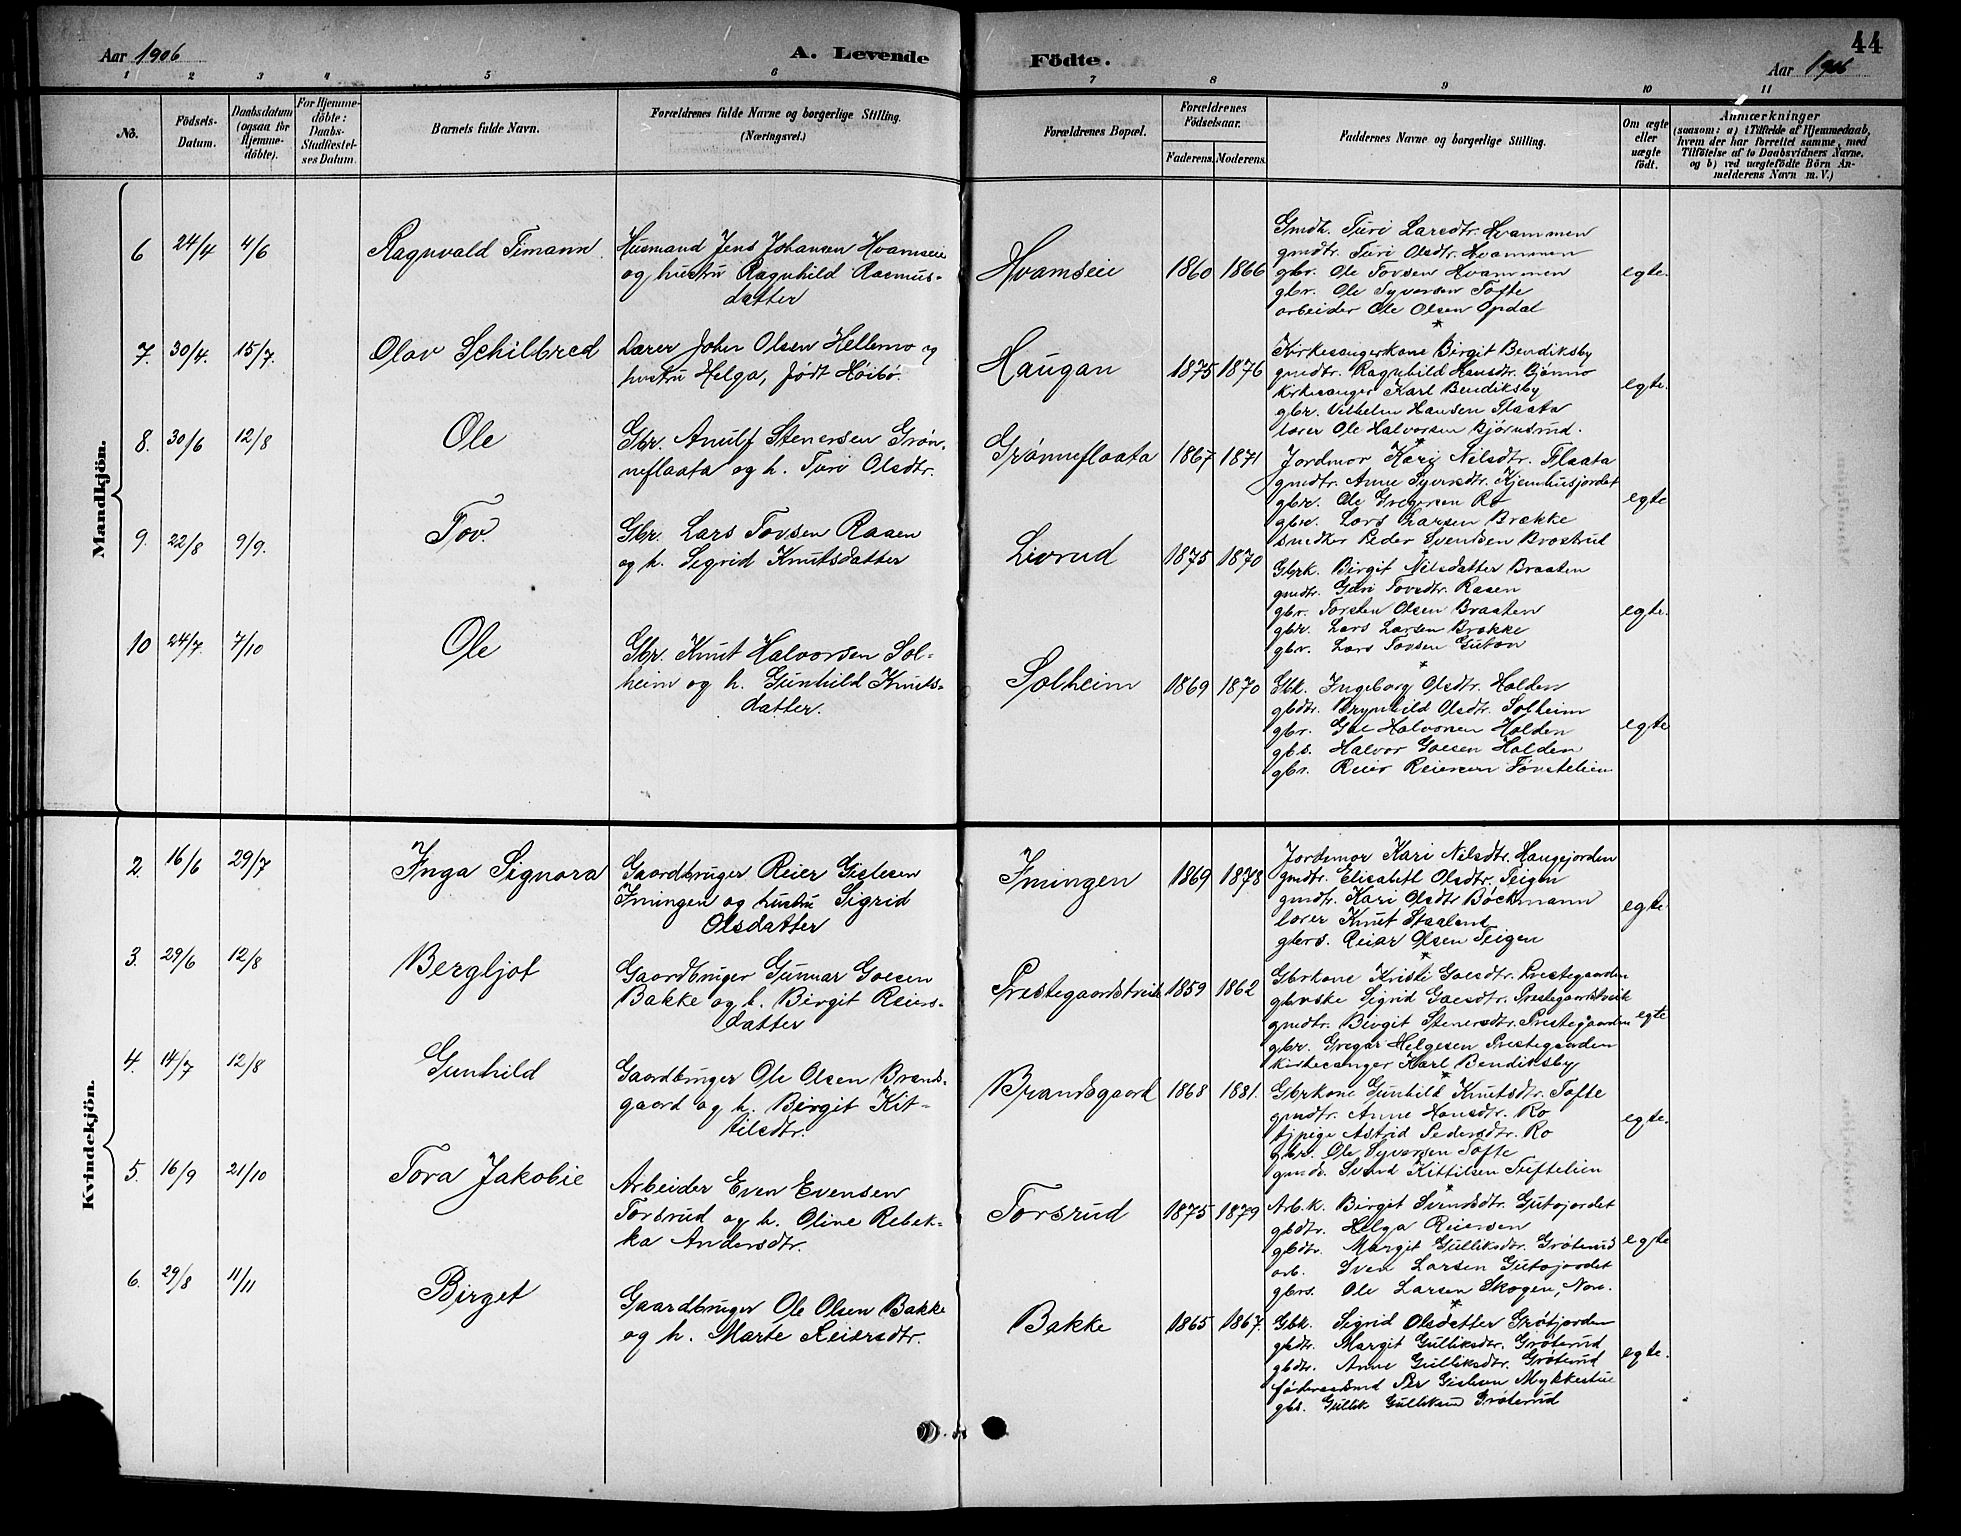 Aar 1906
A. Levende
Födte.
44
Aar 1906
1 2 3 4 5 6 7 8 9 10 11
No.
Födsels-
Datum.
Daabsdatum
(ogsaa for
Hjemme-
döbte).
For Hjemme-
döbte:
Daabs-
Stadfæstel-
ses Datum.
Barnets fulde Navn.
Forældrenes fulde Navne og borgerlige Stilling.
(Næringsvei.)
Forældrenes Bopæl.
Forældrenes
Födselsaar.
Faderens. Moderens.
Faddernes Navne og borgerlige Stilling.
Om ægte
eller
uægte
födt.
Anmærkninger
(saasom: a) i Tilfælde af Hjemmedaab,
hvem der har forrettet samme, med
Tilföielse af to Daabsvidners Navne,
og b) ved uægtefödte Börn An-
melderens Navn m. V.)
Mandkjön.
6 24/4 4/6 Ragnvald Timann
Husmand Jens Johansen Hvamseie
og hustru Ragnhild Rasmus-
datter
Hvamseie 1860 1866
Gmdk. Turi Larsdtr. Hvammen
gmdtr. Turi Olsdtr. Hvammen
gbr. Ole Tovsen Hvammen
gbr. Ole Syversen Tofte
arbeider Ole Olsen Opdal
egte.
7. 30/4. 15/7. Olav Schilbred
Lærer John Olsen Hellemo og
hustru Helga, født Høibø.
Haugan 1875 1876
Kirkesangerkone Birgit Bendiksby
gmdtr. Ragnhild Hansdtr. Bjønno
Kirkesanger Karl Bendiksby
gbr. Vilhelm Hansen Flaata
lærer Ole Halvorsen Bjørnsrud.
egte.
8. 30/6 12/8 Ole
Gbr. Anulf Stenersen Grøn-
neflaata og h. Turi Olsdtr.
Grønneflaata 1867 1871
Jordmor Kari Nilsdtr. Flaata
gmdtr. Anne Syversdtr. Kjemhusjordet
gbr. Ole Gregersen Ro
gbr. Lars Larsen Brække
snedker Peder Svendsen Brostrud
egte
9. 22/8 9/9. Tov.
Gbr. Lars Tovsen Raaen
og h. Sigrid Knutsdatter
Livrud 1875 1870
Gbrk. Birgit Nilsdatter Braaten
gmdtr. Guri Tovsdtr. Raaen
gbr. Torsten Olsen Braaten
gbr. Lars Larsen Brække
gbr. Lars Tovsen Guton
egte.
10 24/7. 7/10 Ole
Gbr. Knut Halvorsen Sol-
heim og h. Gunhild Knuts-
datter.
Solheim 1869 1870
Gbk. Ingeborg Olsdtr. Holden
gbdtr. Brynhild Olsdtr. Solheim
gbr. Goe Halvorsen Holden
gbs. Halvor Goesen Holden
gbr. Reier Reiersen Tovstelien
egte
Kvindekjön.
2 16/6 29/7 Inga Signora
Gaardbruger Reier Gislesen
Imingen og hustru Sigrid
Olsdatter
Imingen 1869 1878
Jordemor Kari Nilsdtr. Haugejorden
gmdtr. Elisabeth Olsdtr. Teigen
gmdtr. Kari Olsdtr Bøckmann
lærer Knut Staaland
gbrs. Reiar Olsen Teigen
egte.
3. 29/6 12/8 Bergljot
Gaardbruger Gunnar Goesen
Bakke og h. Birgit Reiers-
datter
Prestegaardstveit 1859 1862
Gbrkone Kristi Goesdtr. Prestegaarden
gbrenke Sigrid Goesdtr. Prestegaardstveit
gmdtr. Birgit Stenersdtr. Prestegaarden
gbr. Gregar Helgesen Prestegaarden
Kirkesanger Karl Bendiksby
egte
4. 14/7 12/8 Gunhild
Gaardbruger Ole Olsen Brands-
gaard og h. Birgit Kit-
tilsdtr.
Brandsgaard 1868 1881.
Gbrkone Gunhild Knutsdtr. Tofte
gmdtr. Anne Hansdtr. Ro
tjpige Astrid Pedersdtr. Ro
gbr. Ole Syversen Tofte
gmds. Svend Kittilsen Tuftelien
egte.
5. 16/9 21/10 Tora Jakobie
Arbeider Even Evensen
Torsrud og h. Oline Rebek-
ka Andersdtr.
Torsrud 1875 1879
Arb.k. Birgit Svendsdtr. Gutujordet
gbdtr. Helga Reiersen
gbdtr. Margit Gulliksdtr. Grøterud
arb. Sven Larsen Gutujordet
gbrs. Ole Larsen Skogen, Nore.
egte
6. 29/8 11/11 Birget
Gaardbruger Ole Olsen Bakke
og h. Marte Reiersdtr.
Bakke 1865 1867.
Gbk. Sigrid Olsdatter Grøtjorden
gbdtr. Margit Gulliksdtr. Grøterud
gbdtr. Anne Gulliksdtr. Grøterud
føderaadsmd Per Gislesen Mykkestue
gbs. Gullik Gulliksen Grøterud
egte.